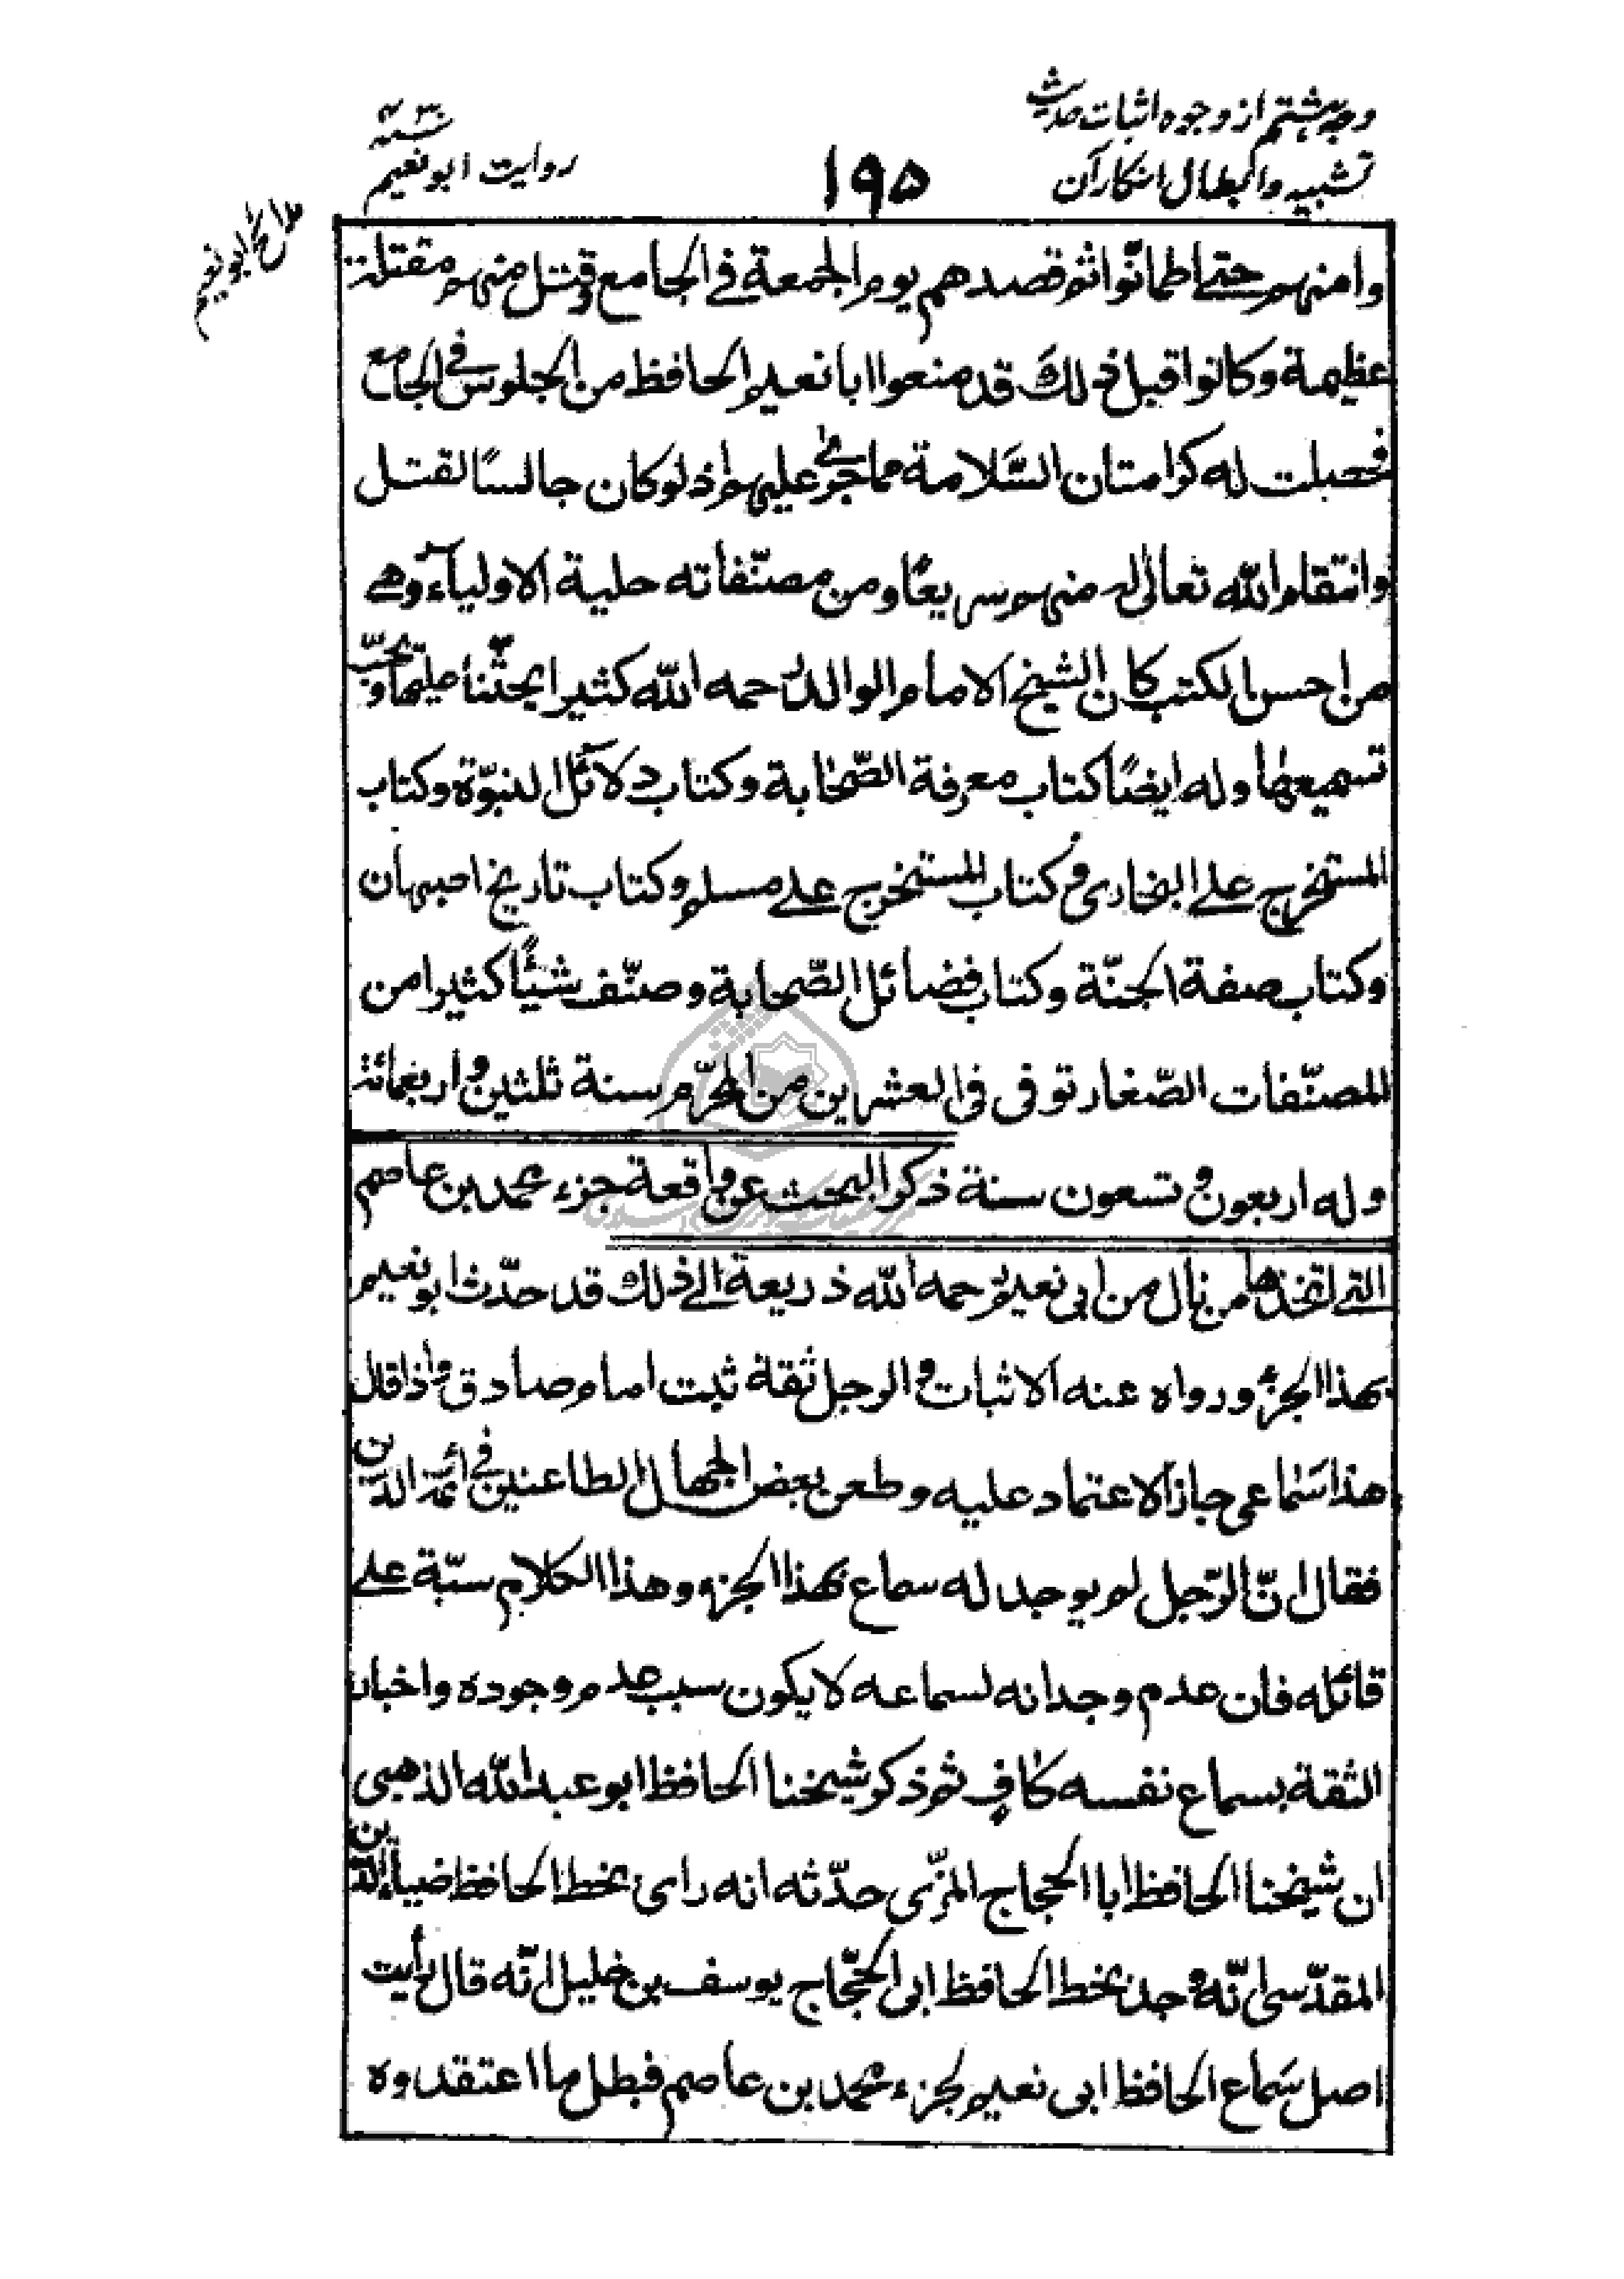 وجه هشتم از وجوه اثبات حدیث
تشبیه وابطال انکار آن
۱۹۵
تتمّه
روایت ابو نعیم
مدائح ابو نعیم
وامنهم حتى اطمانّوا ثم قصدهم يوم الجمعة فى الجامع وقتل منهم مقتلة
عظيمة وكانوا قبل ذلك قد منعوا ابا نعيم الحافظ من الجلوس فى الجامع
فحصلت له كرامتان السَّلامة مما جرى عليهم اذ لو كان جالسًا لقتل
وانتقام الله تعالى له منهم سريعًا ومن مصنّفاته حلية الاولياء وهى
من احسن الكتب كان الشيخ الامام الوالد رحمه الله كثير ايحثّنا عليها ويحبّ
تسميعها وله ايضًا كتاب معرفة الصّحابة وكتاب دلائل النبوّة وكتاب
المستخرج على البخارى وكتاب المستخرج على مسلم وكتاب تاريخ اصبهان
وكتاب صفة الجنّة وكتاب فضائل الصّحابة وصنّف شيئًا كثيرا من
المصنّفات الصّغار توفى فى العشرين من المحرّم سنة ثلثين واربعمائة
وله اربعون و تسعون سنة ذكر البحث عن واقعة جزء محمد بن عاصم
التى اتخذها من نال من ابى نعيم رحمه الله ذريعة الى ذلك قد حدّث ابو نعيم
بهذا الجزء ورواه عنه الاثبات والرجل ثقة ثبت امام صادق واذا قال
هذا سَماعى جاز الاعتماد عليه وطعن بعض الجهال الطاعنين فى أئمة الدين
فقال انّ الرّجل لم يوجد له سماع بهذا الجزء وهذا الكلام سبّة على
قائله فان عدم وجدانه لسماعه لا يكون سبب عدم وجوده واخبار
الثقة بسماع نفسه كافٍ ثم ذكر شيخنا الحافظ ابو عبد الله الذهبى
ان شيخنا الحافظ ابا الحجاج المزّى حدّثه انه راى بخط الحافظ ضياء الدين
المقدّسى انّه وجد بخط الحافظ ابى الحجّاج يوسف بن خليل انّه قال رأيت
اصل سَماع الحافظ ابى نعيم لجزء محمد بن عاصم فبطل ما اعتقدوه